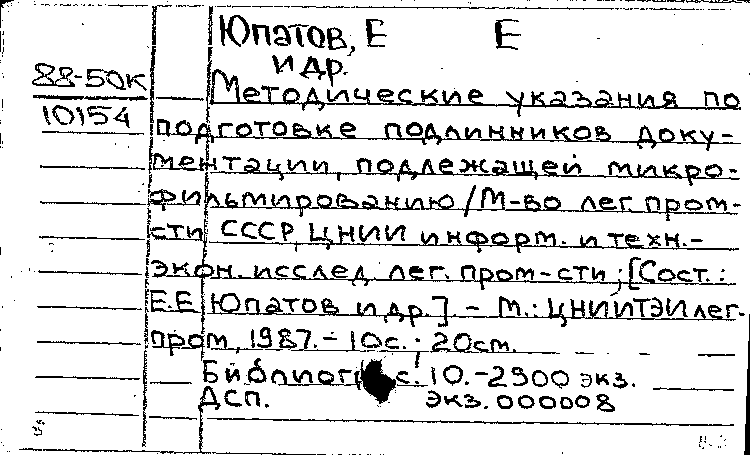 Юпатов, Е Е
и др.
88-50К
10154
Методические указания по
подготовке подлинников доку-
ментации, подлежащей микро-
фильмированию/М-во лег. пром-
сти СССР, ЦНИИ информ. и техн.-
экон. исслед. лег. пром-сти; [Сост.:
Е.Е Юпатов и др.] - М.: ЦНИИТЭИлег-
пром, 1987. - 10с.; 20см.
Библиогр. с. 10. - 2900 экз.
ДСП. экз. 000008